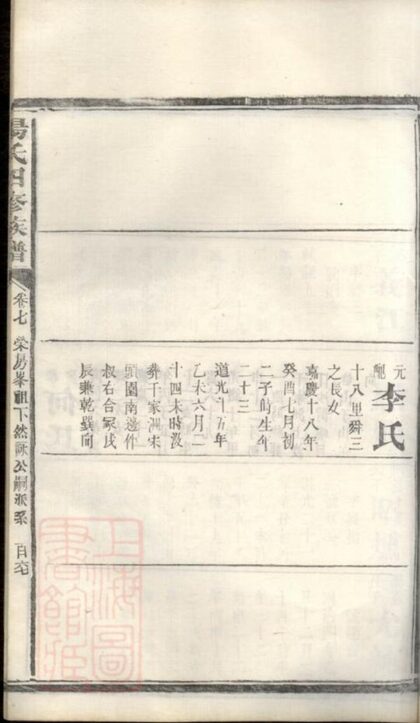 元配李氏
十八里舜三
之長女
嘉慶十八年
癸酉七月初
二子時生年
二十三
道光十五年
乙未六月二
十四未時沒
葬于家洲宋
頭園南邊作
叔右合冢戌
辰兼乾巽向
湯氏四修族譜
卷七
榮易峯祖下然公嗣派系
上海圖書館藏